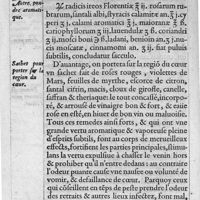 Autre, pou-
dre aromati-
que.
℞ radicis ireos Florentiæ ℥ ij. rosarum ru-
brarum, santali albi, styracis calamitæ an. ℥ j. cy-
peri ʒ j. calami aromatici ʒ j. maioranæ
caryophyllorum ʒ iij. lauendulæ
ʒ ij. moschi boni ℈ ladani, benioin an. ʒ j. nu-
cis moscatæ, cinnamomi an. ʒ ij. fiat puluis
subtilis, concludatur sacculo.
Sachet pour
porter sur la
region du
cœur.
D'auantage, on portera sur la regiō du cœur
vn sachet fait de roses rouges, violettes de
Mars, fueilles de myrthe, escorce de citron,
santal citrin, macis, cloux de girofle, canelle,
saffran & theriaque le tout concassé, incorpo-
ré, & arrousé de vinaigre bon & fort, & eaüe
rose en esté, en hyuer d'eaüe de vie, ou maluoisie.
Tous ces remedes ainsi forts, & qui ont vne
grande vertu aromatique & vaporeuse pleine
d'esprits subtils, font au corps de merueilleux
effects, fortifient les parties principales, stimu-
lans la vertu expulsiue à chasser le venin hors
& prohiber qu'il n'entre dedans: au contraire
l'odeur puante cause vne nausee ou volunté de
vomir, & defaillance de cœur. Parquoy ceux
qui cōseillent en tēps de peste prendre l'odeur
des retraits & autres lieux infectez, font mal,